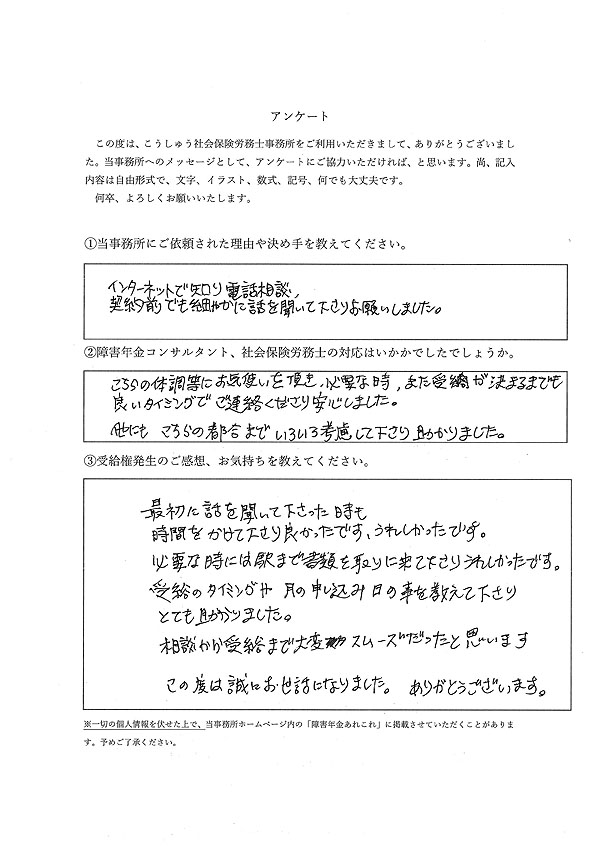 アンケート
この度は、こうしゅう社会保険労務士事務所をご利用いただきまして、ありがとうございまし
た。当事務所へのメッセージとして、アンケートにご協力いただければ、と思います。尚、記入
内容は自由形式で、文字、イラスト、数式、記号、何でも大丈夫です。
何卒、よろしくお願いいたします。
①当事務所にご依頼された理由や決め手を教えてください。
インターネットで知り電話相談、
契約前でも細やかに話を聞いて下さりお願いしました。
②障害年金コンサルタント、社会保険労務士の対応はいかかでしたでしょうか。
こちらの体調等にお気使いを頂き、必要な時、また受給が決まるまでも
良いタイミングでご連絡くださり安心しました。
他にもこちらの都合までいろいろ考慮して下さり助かりました。
③受給権発生のご感想、お気持ちを教えてください。
最初に話を聞いて下さった時も
時間をかけて下さり良かったです、うれしかったです。
必要な時には駅まで書類を取りに来て下さりうれしかったです。
受給のタイミングや月の申し込み日の事を教えて下さり
とても助かりました。
相談から受給まで大変スムーズだったと思います
この度は誠にお世話になりました。ありがとうございます。
※一切の個人情報を伏せた上で、当事務所ホームページ内の「障害年金あれこれ」に掲載させていただくことがありま
す。予めご了承ください。